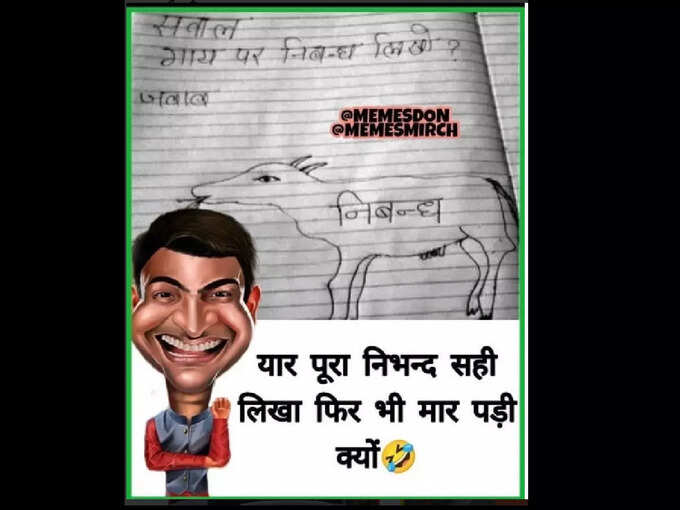 सवाल
गाय पर निबन्ध लिखो ?
जवाब
@MEMESDON
@MEMESMIRCH
निबन्ध
यार पूरा निभन्द सही
लिखा फिर भी मार पड़ी
क्यों🤣